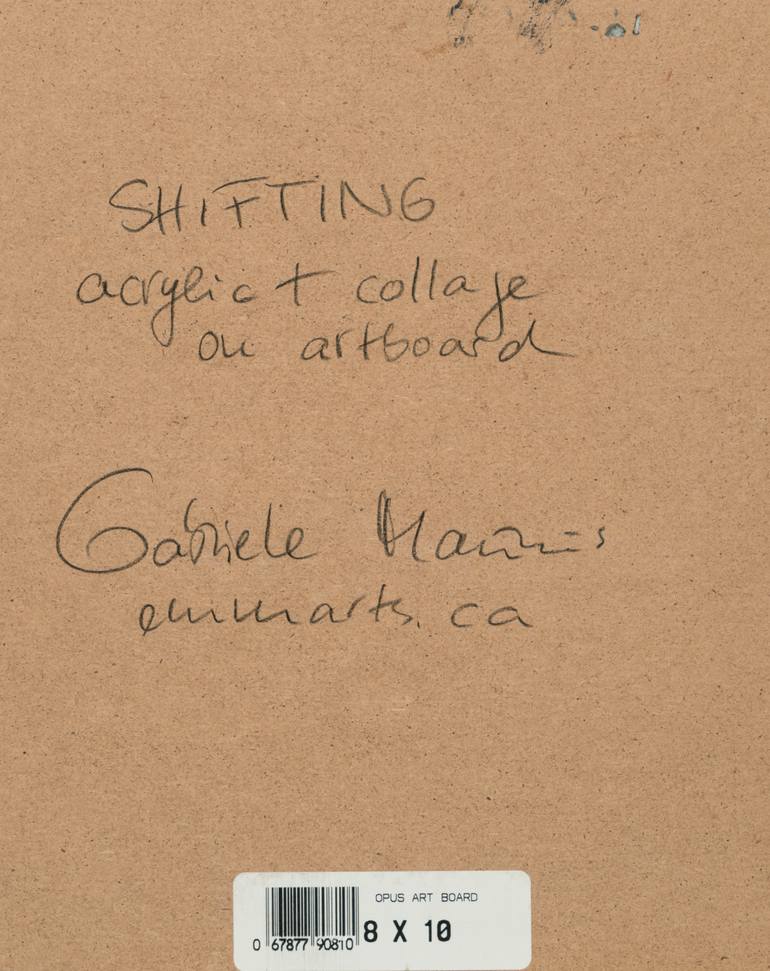 SHIFTING
acrylic + collage
on artboard
Gabriele
OPUS ART BOARD
8 X 10
0 67877 90810